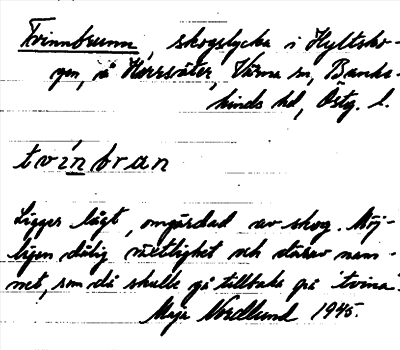 Tvinnbrunn, skogslycka i Hyltsko-
gen, å Herrsäter, Värna sn, Banke-
kinds hd, Östg. l.
tvinbran
Ligger lågt, omgärdad av skog. Möj-
ligen dålig växtlighet och därav nam-
net, som då skulle gå tillbaka på 'tvina'.
Maja Nordlund 1945.